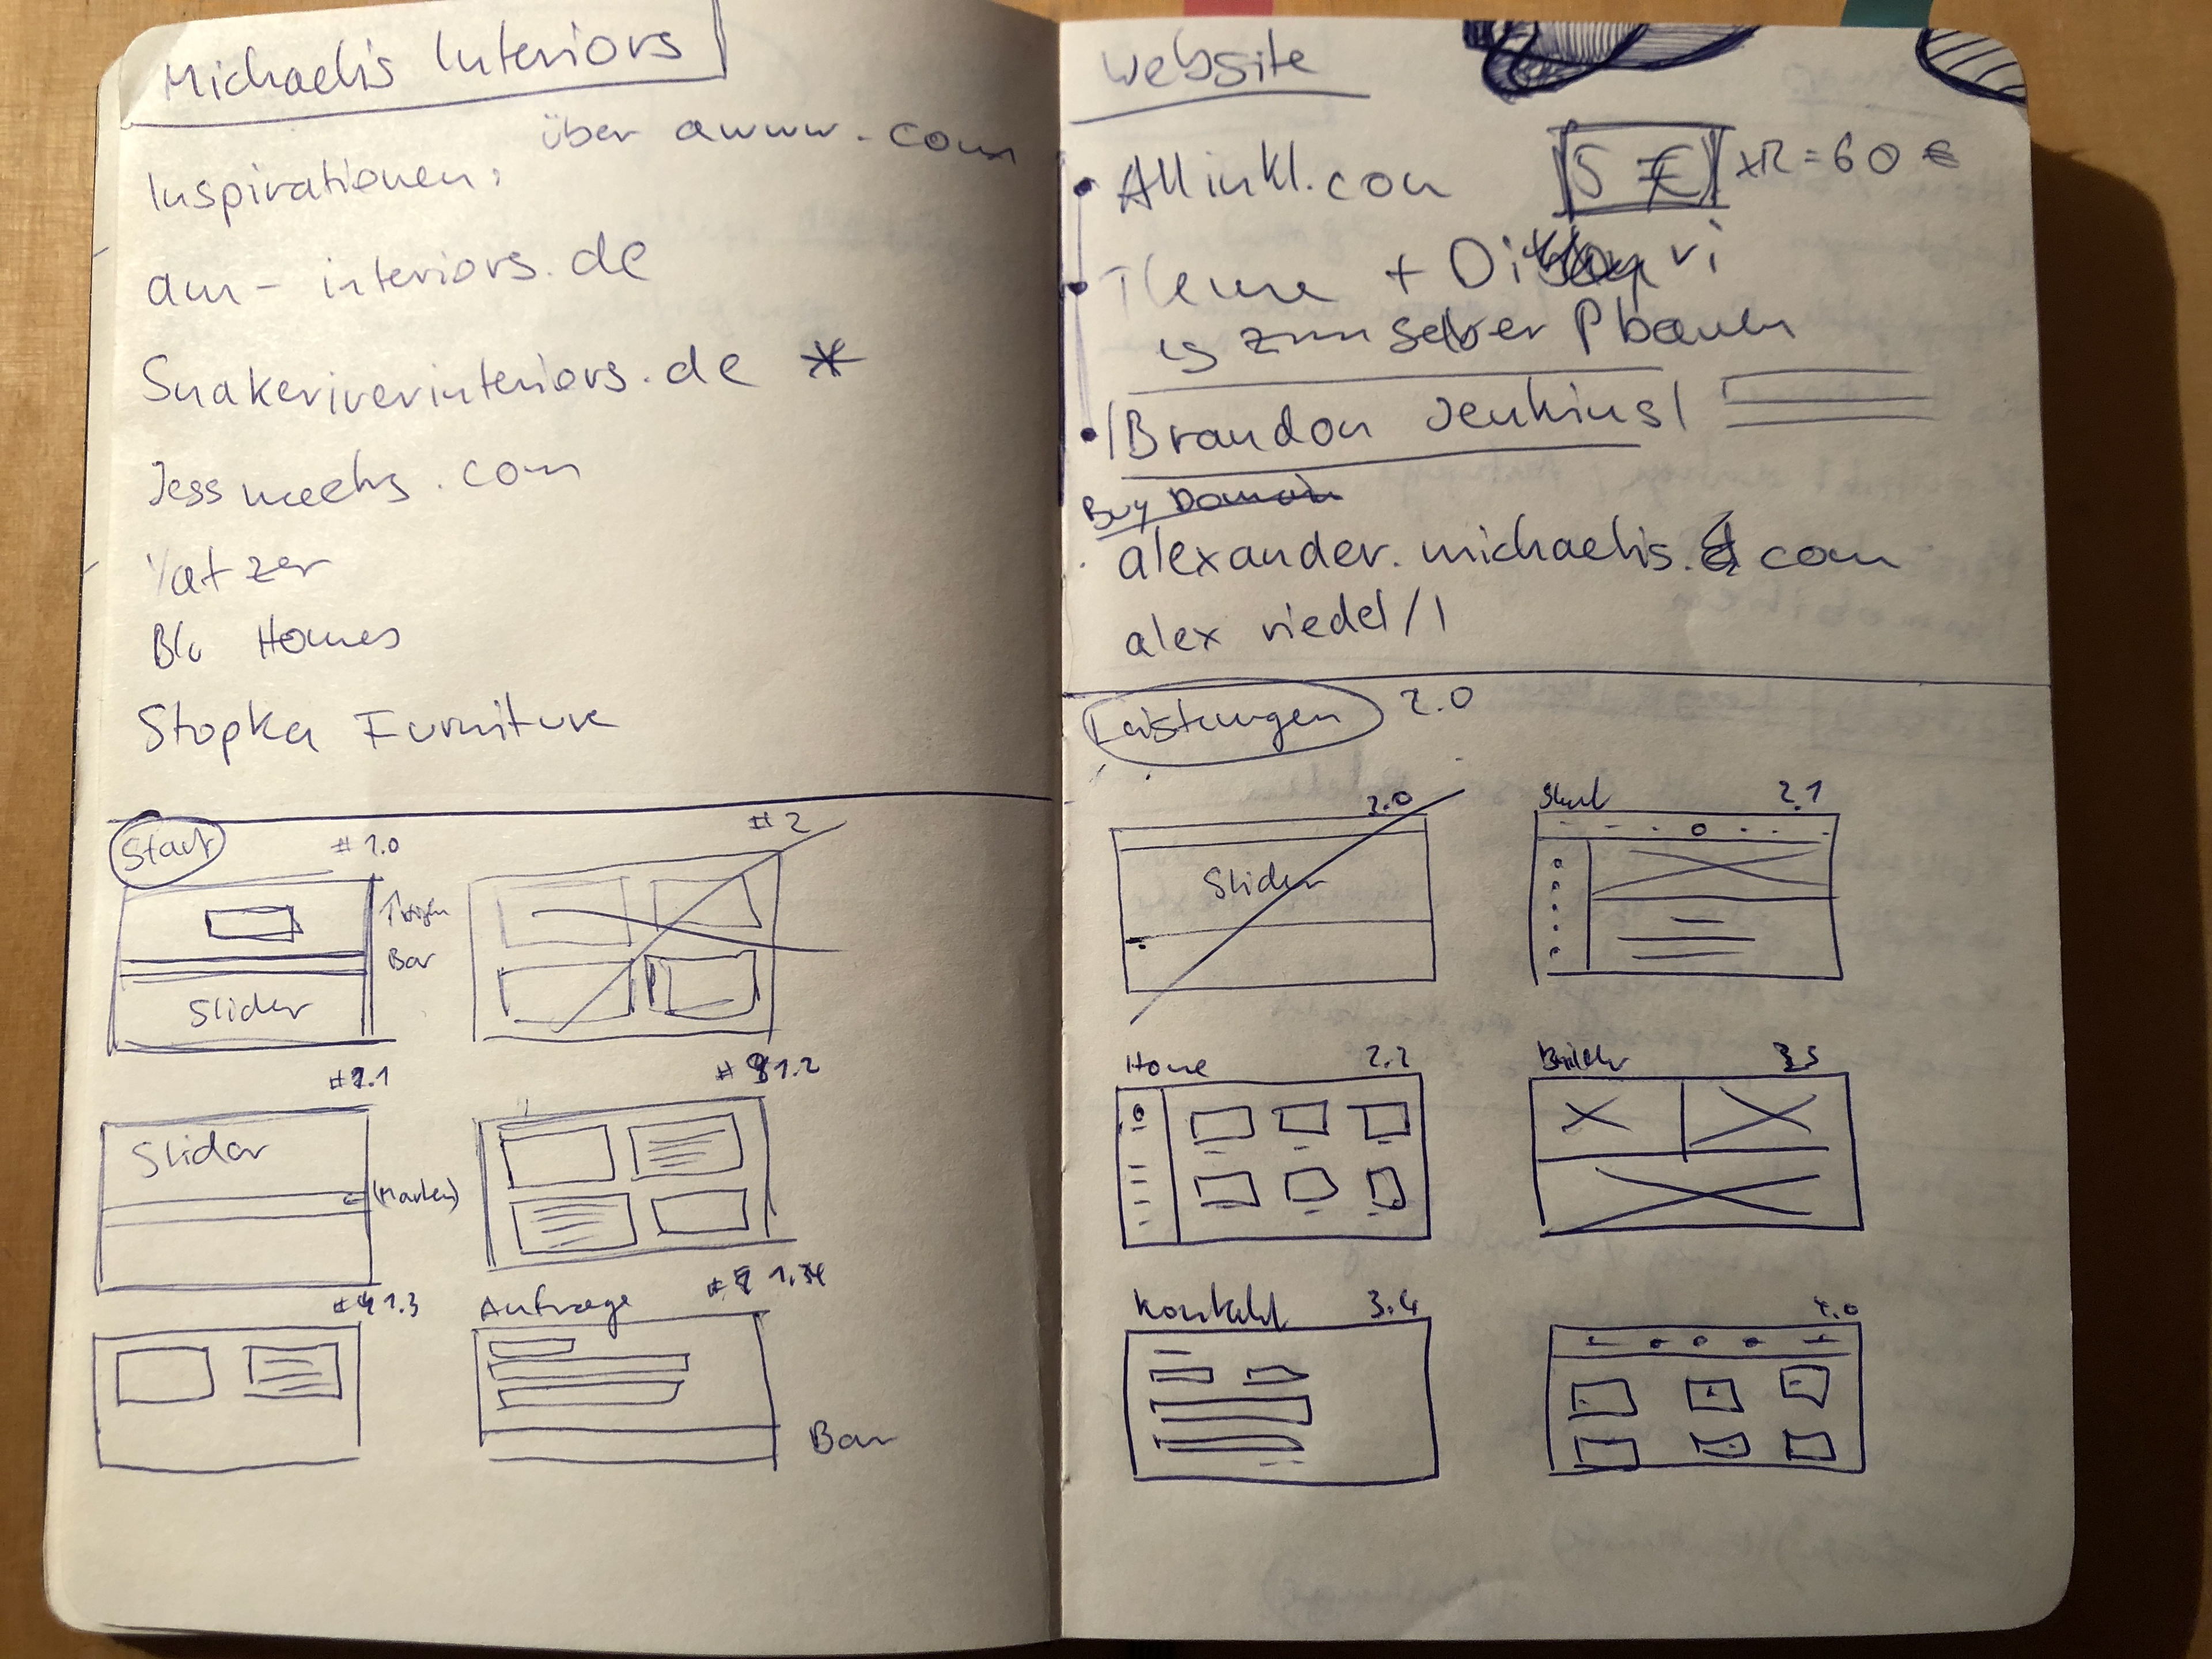 Michaelis Interiors
über awww.com
Inspirationen:
am-interiors.de
Snakeriverinteriors.de *
Jessmeeks.com
Yatzer
Blu Homes
Stopka Furniture
Start
#1.0
#2
Bar
Slider
#1.1
#1.2
Slider
(Marken)
#1.3
Anfrage
Bar
Website
Allinkl.com 5 € x12 = 60 €
Theme +
zum selber bauen
Brandon Jenkins
Buy Domain
alexander.michaelis. com
alex riedel/1
Leistungen 2.0
2.0
Slider
2.1
Home 2.2
Bilder
Kontakt 3.4
4.0